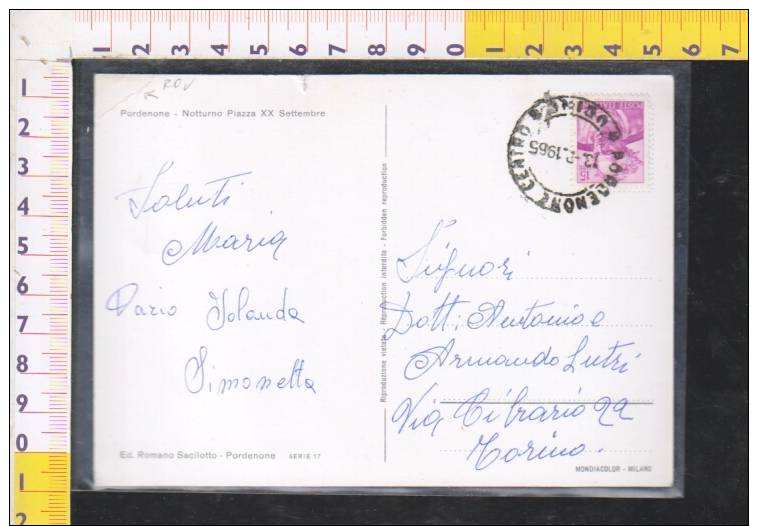 ROV
Pordenone - Notturno Piazza XX Settembre
Saluti
Maria
Dario Jolanda
Simonetta
Ed. Romano Sacilotto - Pordenone SERIE 17
Riproduzione vietata - Reproduction interdite - Forbidden reproduction
PORDENONE CENTRO
13. 2. 1965
15
Signori
Dott: Antonio e
Armando Lutri
Via Cibrario 22
Torino.
MONDIACOLOR - MILANO
1 2 3 4 5 6 7 8 9 0 1 2 3 4 5 6 7
1
2
3
4
5
6
7
8
9
0
1
2